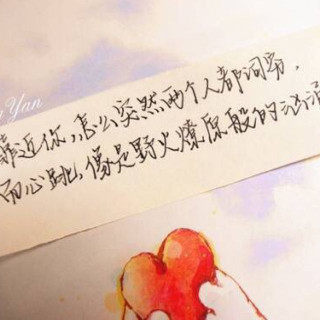 Yan
靠近你,怎么突然两个人都词穷.
而心跳,像是野火燎原般的汹涌